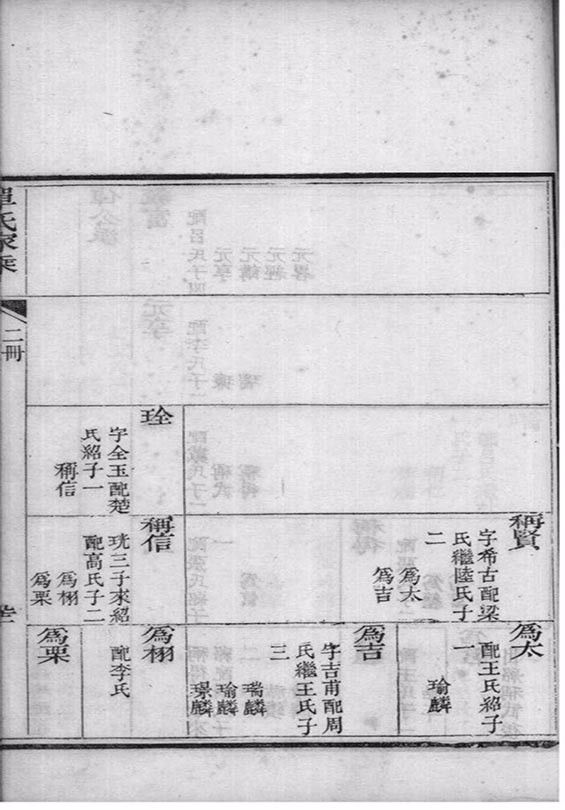 稱賢
字希古配梁
氏繼陸氏子
二
爲太
爲吉
爲太
配王氏紹子
一
瑜麟
爲吉
字吉甫配周
氏繼王氏子
三
瑞麟
瑜麟
璟麟
珄
字全玉配楚
氏紹子一
稱信
稱信
珖三子來紹
配高氏子二
爲栩
爲栗
爲栩
配李氏
爲栗
單氏家乘
二冊